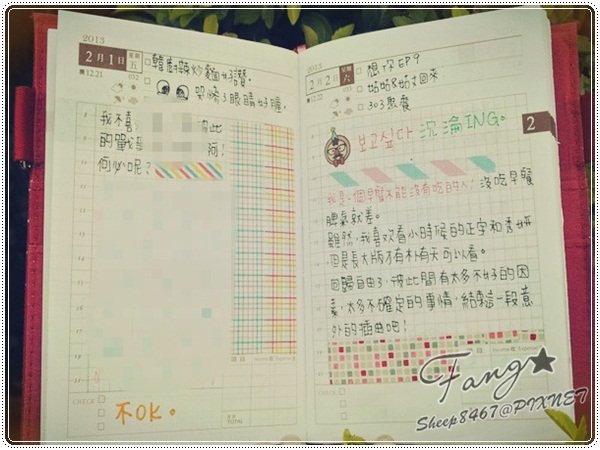 2013
2月1日 星期五
農12.21
032
韓廚辣炒麵好讚。
哭腫了眼睛好腫。
我不喜 彼此
的戰 阿!
何必呢?
CHECK
不OK。
TOTAL
2013
2月2日 星期六
農12.22
033
想你EP9
姑姑&姑丈回來
303聚餐
2
보고싶다 沉淪ING。
我是一個早餐不能沒有吃的人,沒吃早餐
脾氣就差。
雖然,我喜欢看小時候的正宇和秀妍
但是長大版才有朴有天可以看。
回歸自由了,彼此間有太多不好的因
素,太多不確定的事情,結束這一段意
外的插曲吧!
CHECK
Fang★
Sheep8467@PIXNET